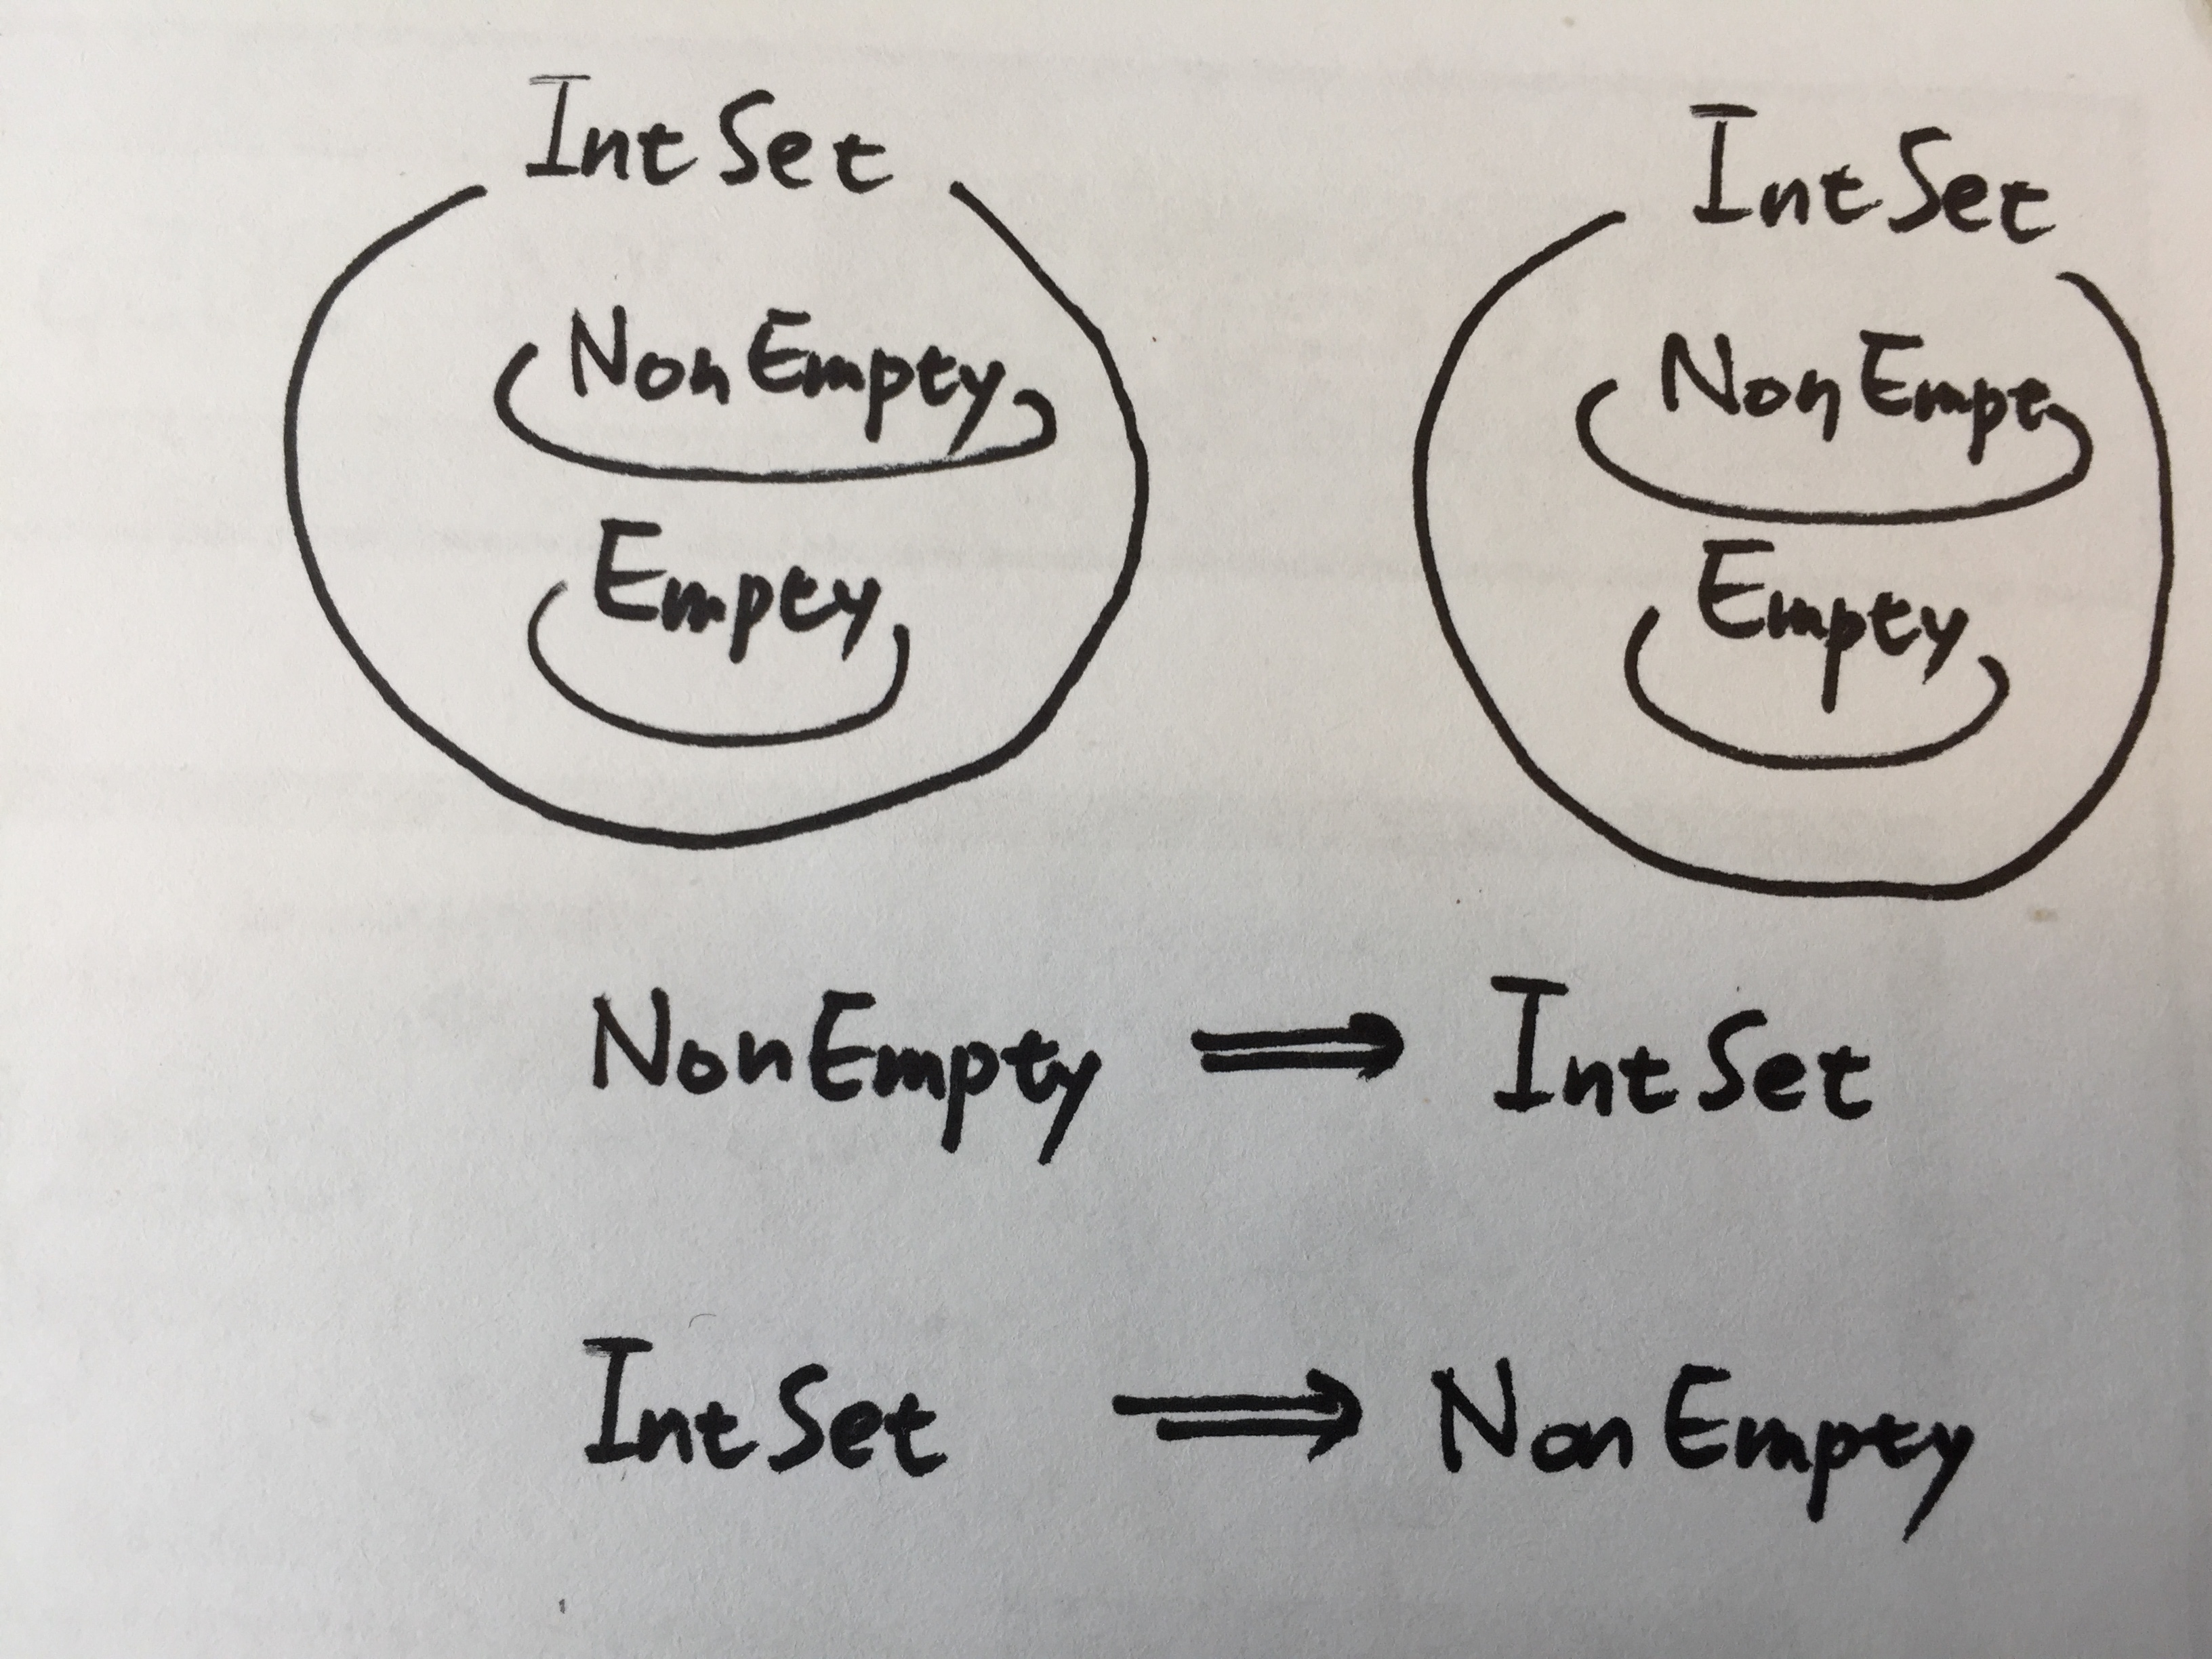 IntSet
NonEmpty
Empty
IntSet
NonEmpty
Empty
NonEmpty ⇒ IntSet
IntSet ⇒ NonEmpty